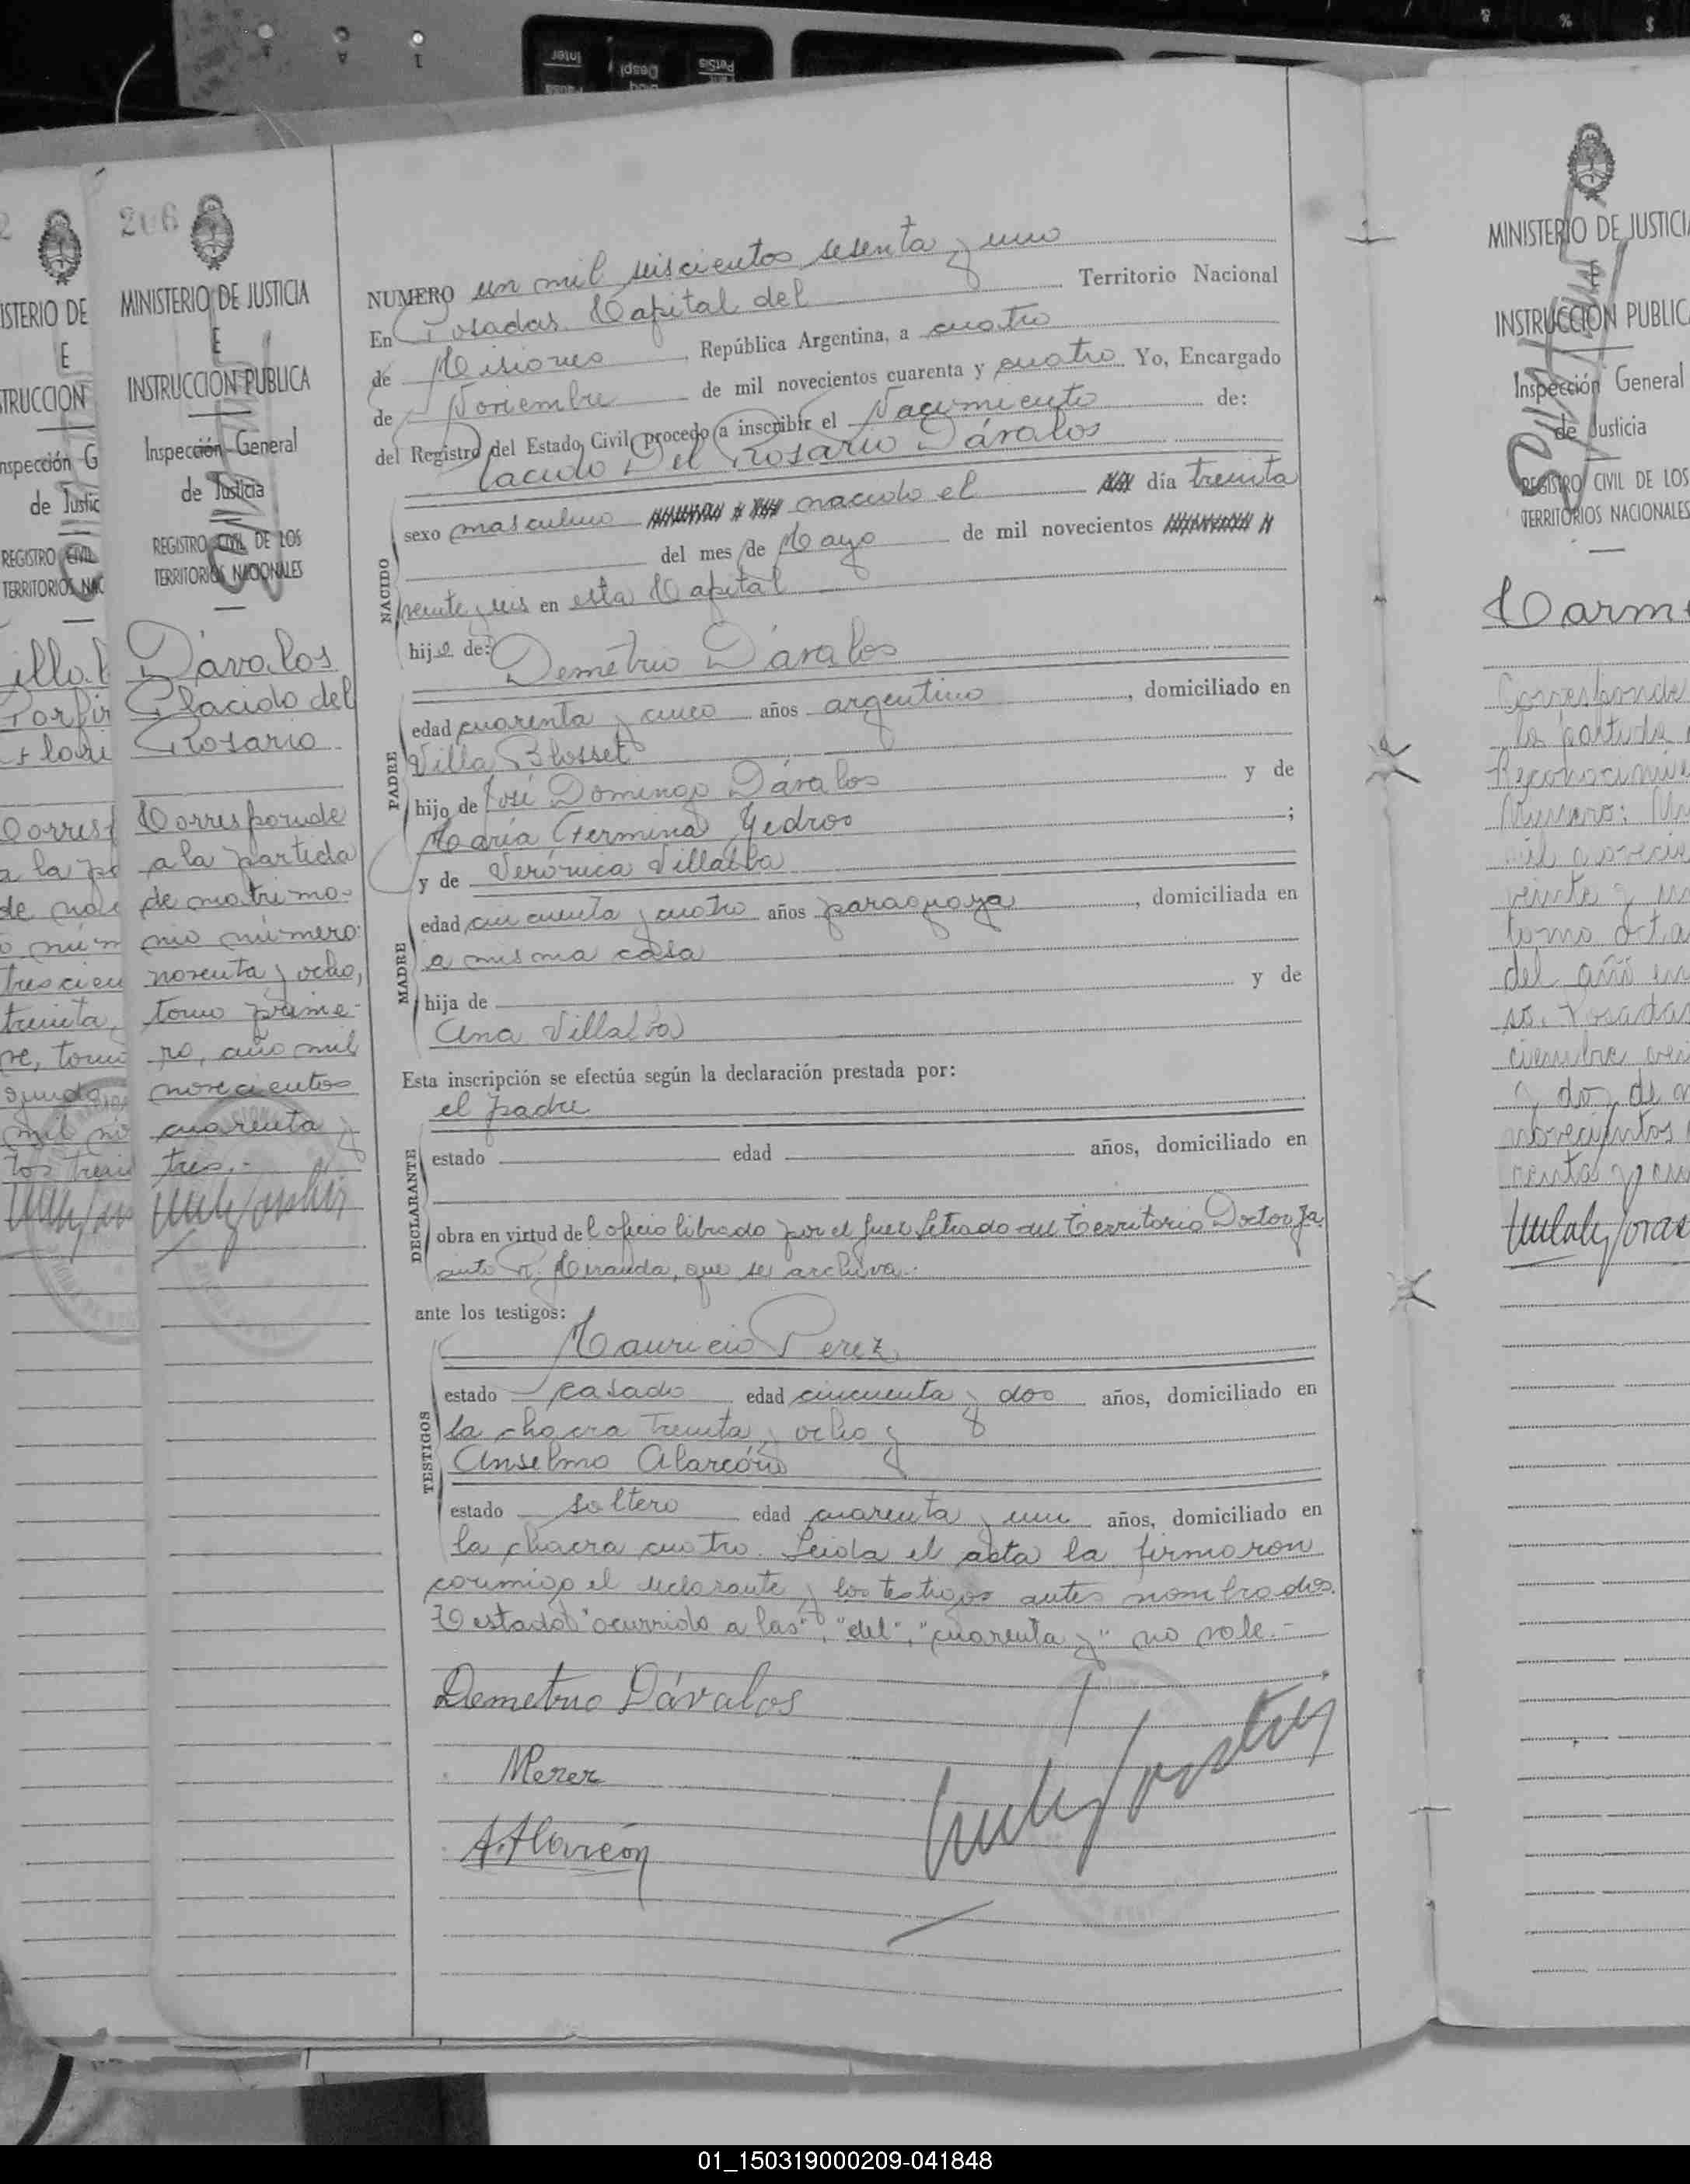 206
MINISTERIO DE JUSTICIA
E
INSTRUCCION PUBLICA
Inspección General
de Justicia
REGISTRO CIVIL DE LOS
TERRITORIOS NACIONALES
Dávalos
Placido del
Rosario
Corresponde
a la partida
de matrimo-
nio número:
noventa y ocho,
tomo prime-
ro, año mil
novecientos
cuarenta y
tres.-
NUMERO un mil seiscientos sesenta y uno
En Posadas Capital del Territorio Nacional
de Misiones República Argentina, a cuatro
de Noviembre de mil novecientos cuarenta y cuatro Yo, Encargado
del Registro del Estado Civil, procedo a inscribir el Nacimiento de:
Placido Del Rosario Dávalos
NACIDO
sexo masculino nacido el día treinta
del mes de Mayo de mil novecientos
veinte y seis en esta Capital
hijo de: Demetrio Dávalos
PADRE
edad cuarenta y cinco años argentino, domiciliado en
Villa Blosset
hijo de José Domingo Dávalos y de
María Fermina Yedros;
y de Verónica Villalba
MADRE
edad cincuenta y cuatro años paraguaya, domiciliada en
la misma casa
hija de y de
Ana Villalba
Esta inscripción se efectúa según la declaración prestada por:
el padre
DECLARANTE
estado edad años, domiciliado en
obra en virtud del oficio librado por el Juez Letrado del Territorio Doctor Ja
cinto R. Miranda, que se archiva.-
ante los testigos:
Mauricio Perez
TESTIGOS
estado casado edad cincuenta y dos años, domiciliado en
la chacra treinta y ocho y
Anselmo Alarcón
estado soltero edad cuarenta y un años, domiciliado en
la chacra cuatro. Leida el acta la firmaron
conmigo el declarante y los testigos antes nombrados.
Testado "ocurrido a las", "del", "cuarenta y" no vale.-
Demetrio Dávalos
MPerez
A. Alarcón
MINISTERIO DE JUSTICIA
E
INSTRUCCION PUBLIC
Inspección General
de Justicia
REGISTRO CIVIL DE LOS
TERRITORIOS NACIONALES
Carm
Corresponde
la partida
Reconocimie
Número: Mi
veinte y un
tomo octa
del año en
so. Posadas
01_150319000209-041848